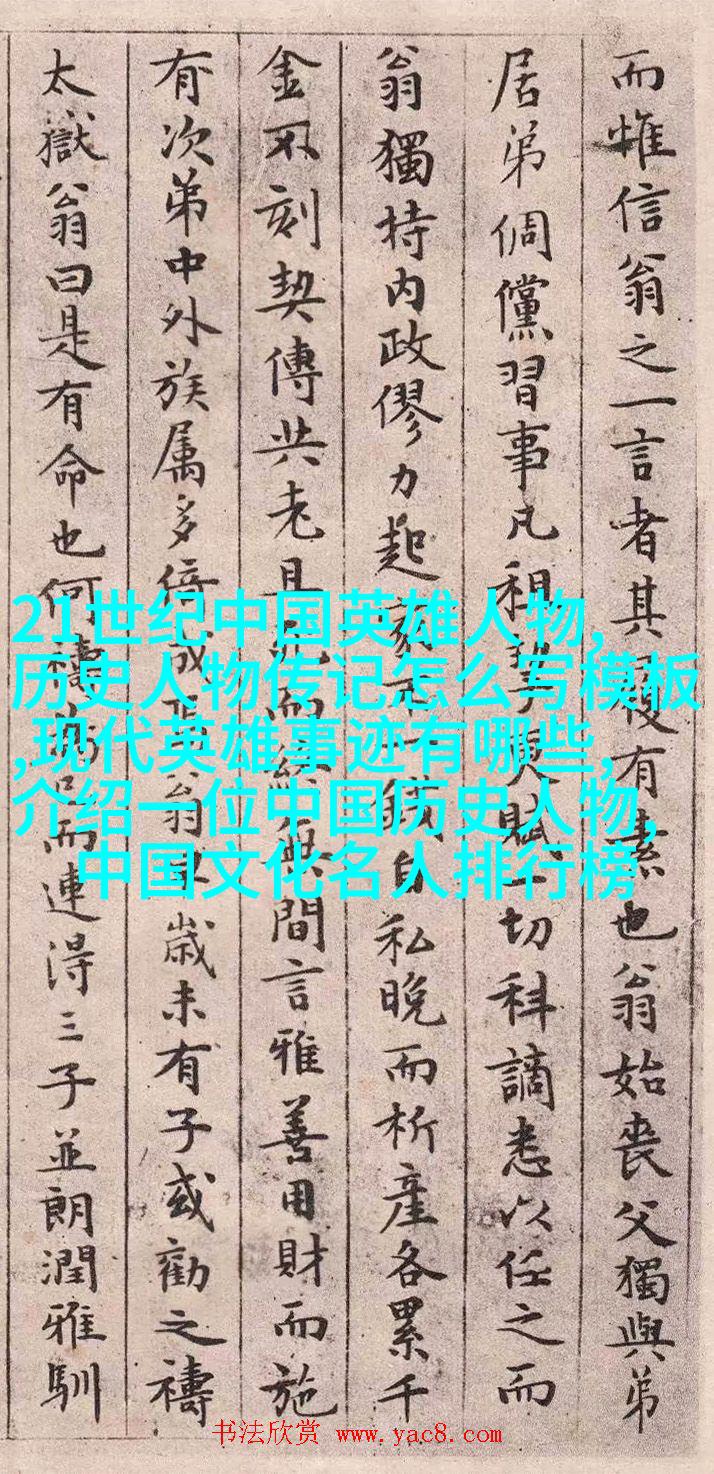 而惟信翁之一言者其有素也翁始喪父獨與弟
居弟倜儻習事凡租賦一切科謫悉以任之而
翁獨持内政僇力起自私晚而析產各累千
金不刻契傳共老且間言雅善用財而施
有次弟中外族属多倚歲未有子或勸之禱
太嶽翁曰是有命也何禱而連得三子並朗潤雅馴
21世纪中国英雄人物,
历史人物传记怎么写模板
,现代英雄事迹有哪些,
介绍一位中国历史人物,
中国文化名人排行榜
书法欣赏 www.yac8.com